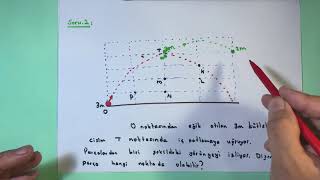 Soru.2:
3m
2m
K
m
L
P
N
3m
O
O noktasından eğik atılan 3m kütleli
cisim T noktasında iç patlamaya uğruyor.
Parçalardan biri şekildeki yörüngeyi izliyor. Diğer
parça hangi noktada olabilir?